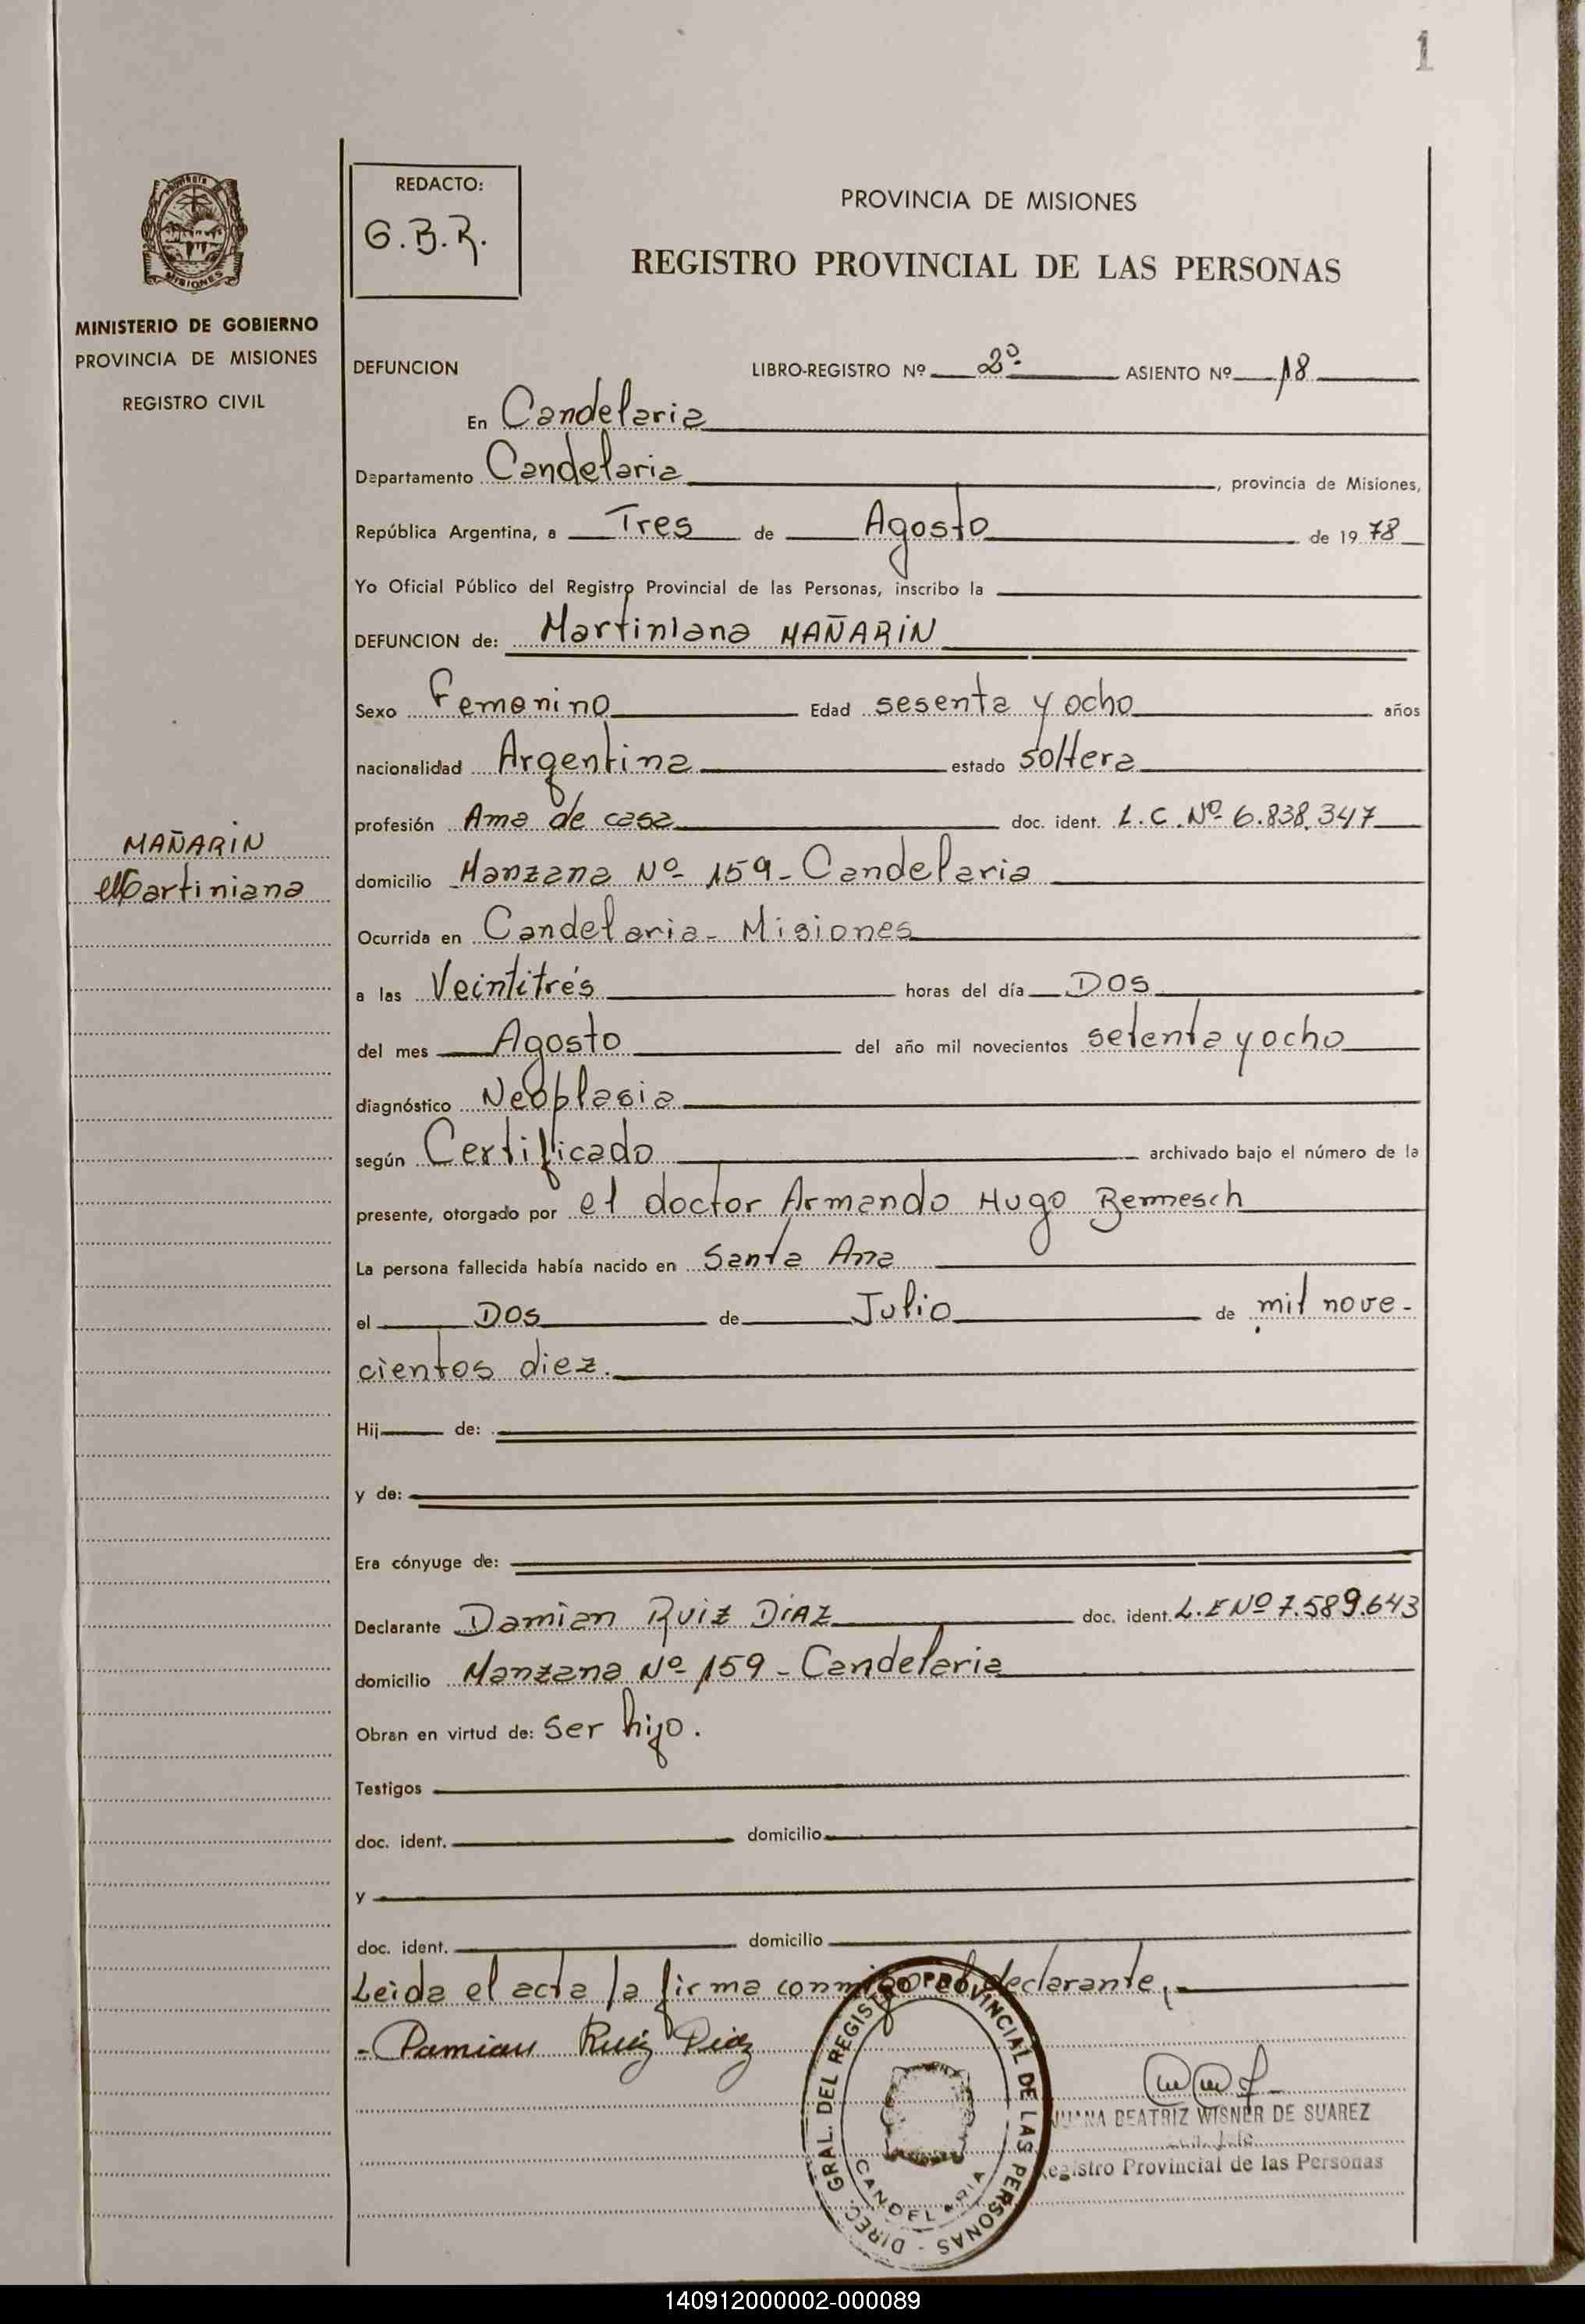 1
MISIONES
MINISTERIO DE GOBIERNO
PROVINCIA DE MISIONES
REGISTRO CIVIL
MAÑARIN
Martiniana
REDACTO:
G.B.R.
PROVINCIA DE MISIONES
REGISTRO PROVINCIAL DE LAS PERSONAS
DEFUNCION LIBRO-REGISTRO Nº 2º ASIENTO Nº 18
En Candelaria
Departamento Candelaria, provincia de Misiones,
República Argentina, a Tres de Agosto de 1978
Yo Oficial Público del Registro Provincial de las Personas, inscribo la
DEFUNCION de: Martiniana MAÑARIN
Sexo Femenino Edad sesenta y ocho años
nacionalidad Argentina estado soltera
profesión Ama de casa doc. ident. L.C. Nº 6.838.347
domicilio Manzana Nº 159 - Candelaria
Ocurrida en Candelaria - Misiones
a las Veintitrés horas del día DOS
del mes Agosto del año mil novecientos setenta y ocho
diagnóstico Neoplasia
según Certificado archivado bajo el número de la
presente, otorgado por el doctor Armando Hugo Bermesch
La persona fallecida había nacido en Santa Ana
el DOS de Julio de mil nove-
cientos diez.
Hij de:
y de:
Era cónyuge de:
Declarante Damian RUIZ DIAZ doc. ident. L.E Nº 7.589.643
domicilio Manzana Nº 159 - Candelaria
Obran en virtud de: Ser hijo.
Testigos
doc. ident. domicilio
y
doc. ident. domicilio
Leida el acta la firma conmigo el declarante,
- Damian Ruiz Diaz
DIREC. GRAL. DEL REGISTRO PROVINCIAL DE LAS PERSONAS -
CANDELARIA
JUANA BEATRIZ WISNER DE SUAREZ
Registro Provincial de las Personas
140912000002-000089